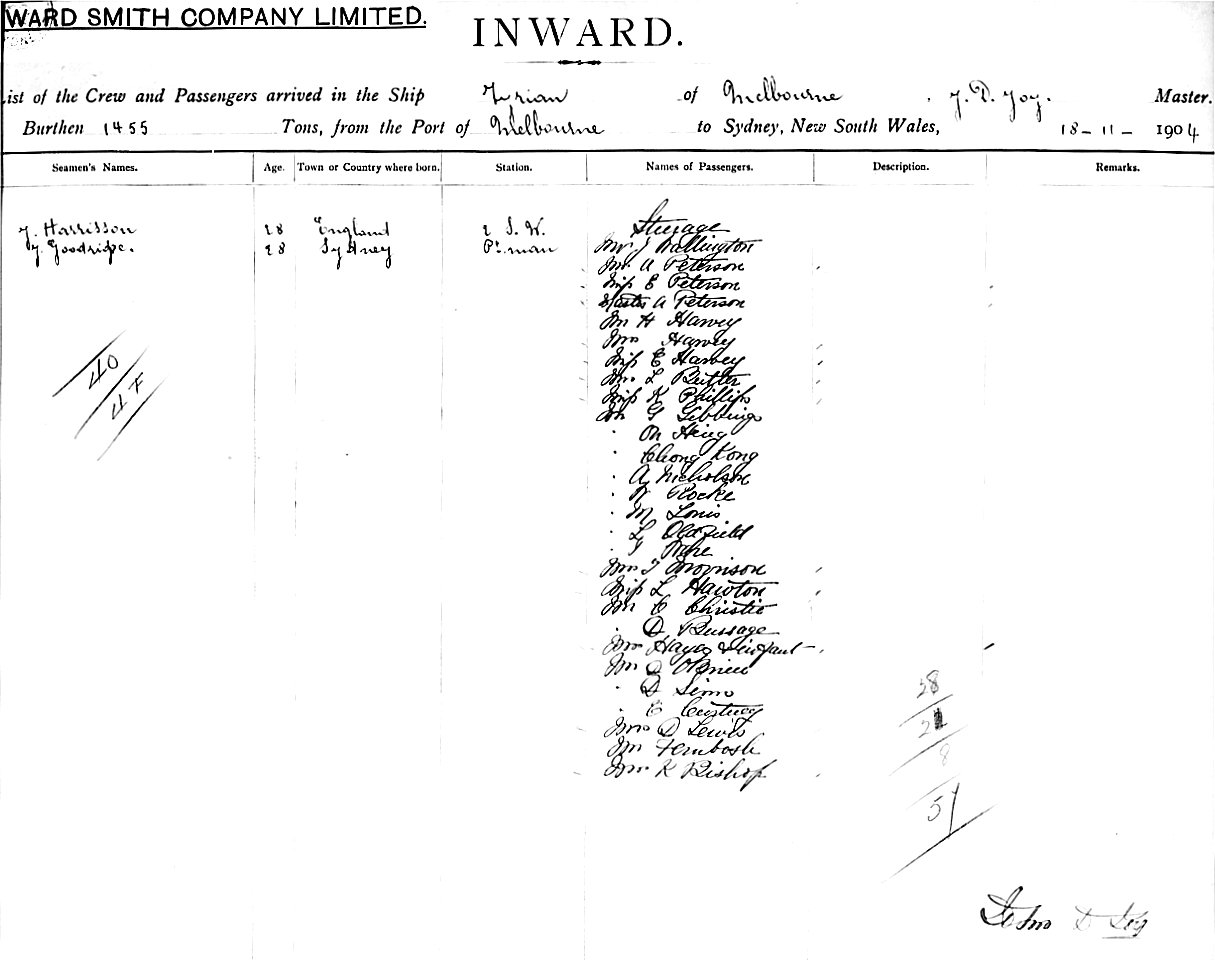 WARD SMITH COMPANY LIMITED.
INWARD.
ist of the Crew and Passengers arrived in the Ship Tyrian of Melbourne, J. D. Joy. Master.
Burthen 1455 Tons, from the Port of Melbourne to Sydney, New South Wales, 18-11- 1904
Seamen's Names. Age. Town or Country where born. Station. Names of Passengers. Description. Remarks.
Steerage
J. Harrisson 28 England 2 S. W.
J. Goodridge. 28 Sydney Pt. man
Mr J Wallington
Mr. A Peterson
Miss E Peterson
Master A Peterson
Mr H Harvey
Mrs Harvey
Miss E Harvey
Mrs L Butler
Miss K Phillips
Mr G Gibbings
" On Hing
" Chong Kong
" A Nicholson
" W Rocke
" M Louis
" L Oldfield
" T
Mrs T Morrison
Miss L Hawton
Mr C Christie
" D Bussage
Mrs Hayes & infant
Mr J O'Brien
" D Sims
" E
Mrs D Lewis
Mr
Mrs K Bishop
40
4 F
28
21
8
57
John D Joy